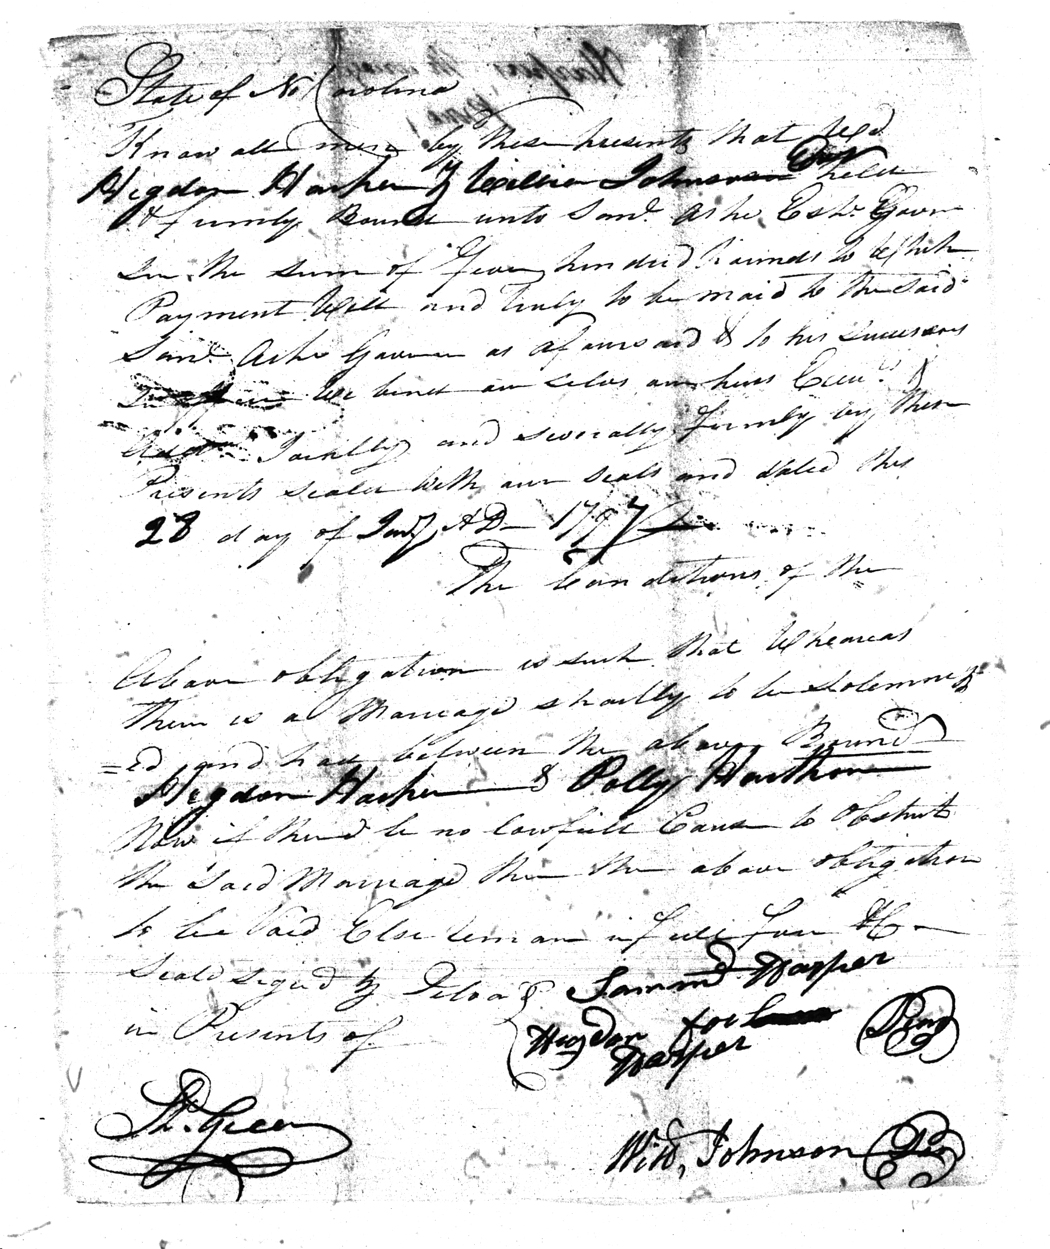 State of No Carolina
Know all men by these presents that we
Higdon Harper & William Johnson are held
& firmly Bound unto Saml. Ashe Esqr. Govr
in the sum of five hundred Pounds to Which
Payment Well and truly to be maid to the said
Saml. Ashe Governer as aforesaid & to his successors
We bind our selves our heirs Exers. &
Admr. Jointly and severally firmly by these
Presents sealed with our seals and dated this
28 day of Jany AD 1797
The Conditions of the
Above obligation is such that Whereas
there is a Marriage shortly to be solemniz
=ed and had between the above Bound
Higdon Harper & Polly Hawthorn
Now if there be no lawfull Cause to obstruct
the said Marriage then the above obligation
to be Void Else remain in full force &C
Seald signd & Delvd
in Presents of
Higdon Harper
for
Harper
Wm. Johnson